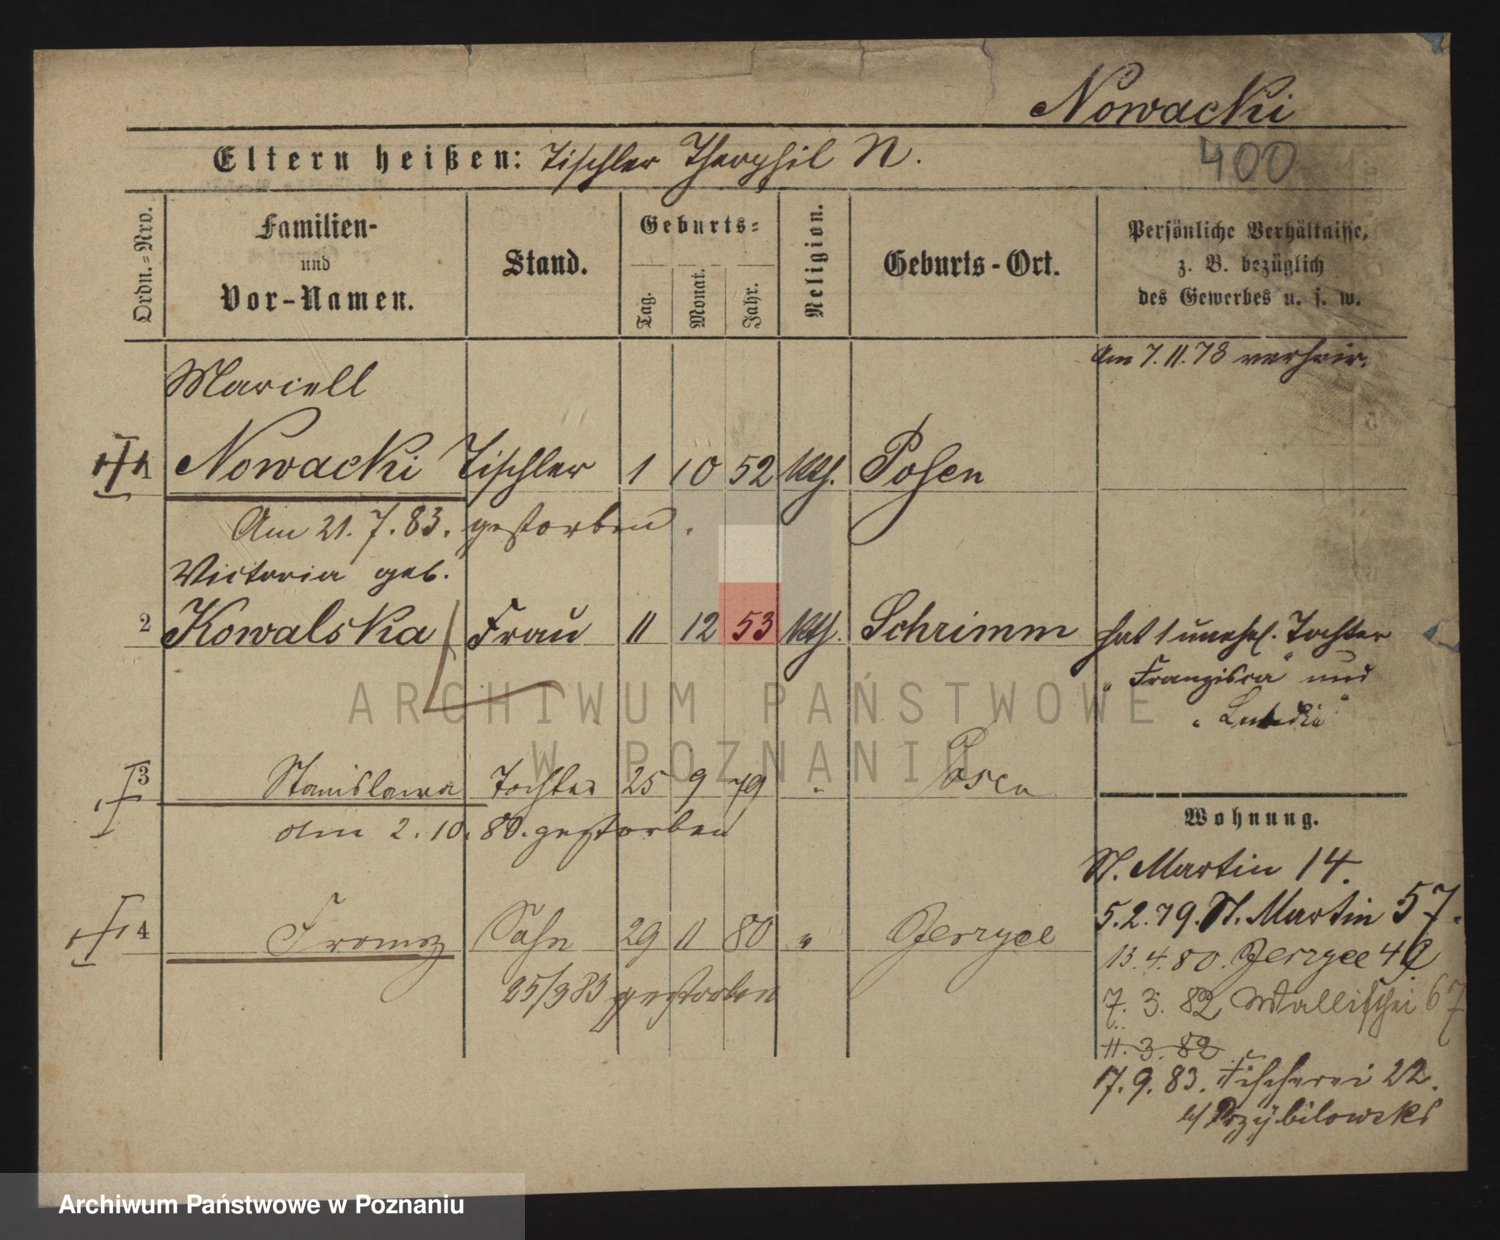 Nowacki
400
Eltern heißen: Tischler Theophil N.
Ordn.-Nro.
Familien-
und
Vor-Namen.
Stand.
Geburts-
Tag.
Monat.
Jahr.
Religion.
Geburts-Ort.
Persönliche Verhältnisse,
z. B. bezüglich
des Gewerbes u. s. w.
Am 7.11.78 verheir.
Marcell
1 Nowacki Tischler 1 10 52 kth. Posen
Am 21.7.83. gestorben.
Victoria geb.
2 Kowalska Frau 11 12 53 kth. Schrimm hat 1 unehel. Tochter
"Franzisca" und
ARCHIWUM PAŃSTWOWE
W POZNANIU
3 Stanislawa Tochter 25 9 79 " Posen
am 2.10.80. gestorben
Wohnung.
St. Martin 14.
4 Franz Sohn 29 11 80 " Jerzyce
25/9 83 gestorben
5.2.79. St. Martin 57.
13.4.80. Jerzyce 49
7.3.82 Wallischei 67
11.3.82
17.9.83. Fischerei 22.
b/ Przybilowski
Archiwum Państwowe w Poznaniu